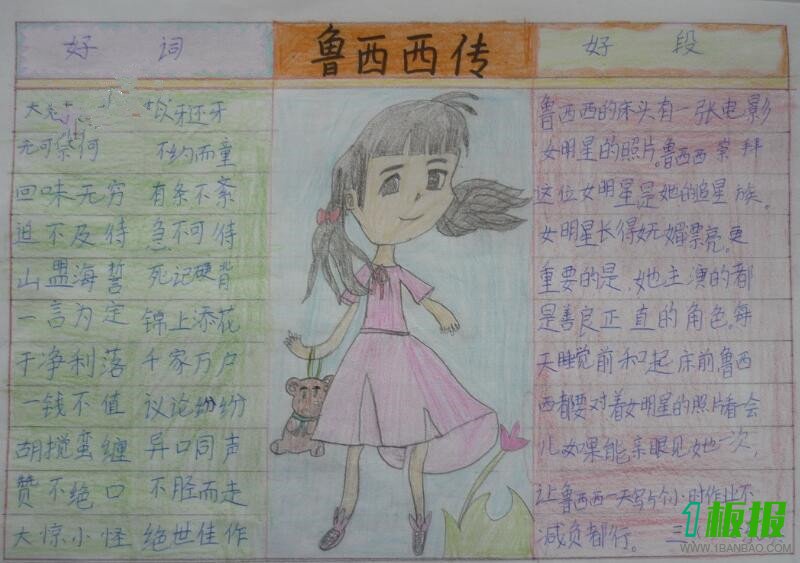 好 词
鲁西西传
好 段
大 以牙还牙
无可奈何 不约而童
回味无穷 有条不紊
迫不及待 急不可待
山盟海誓 死记硬背
一言为定 锦上添花
干净利落 千家万户
一钱不值 议论纷纷
胡搅蛮缠 异口同声
赞不绝口 不胫而走
大惊小怪 绝世佳作
鲁西西的床头有一张电影
女明星的照片。鲁西西崇拜
这位女明星,是她的追星族。
女明星长得妩媚漂亮。更
重要的是,她主演的都
是善良正直的角色。每
天睡觉前和起床前鲁西
西都要对着女明星的照片看会
儿,如果能亲眼见她一次,
让鲁西西一天写个小时作业不
减负都行。 三
1板报
WWW.1BANBAO.COM